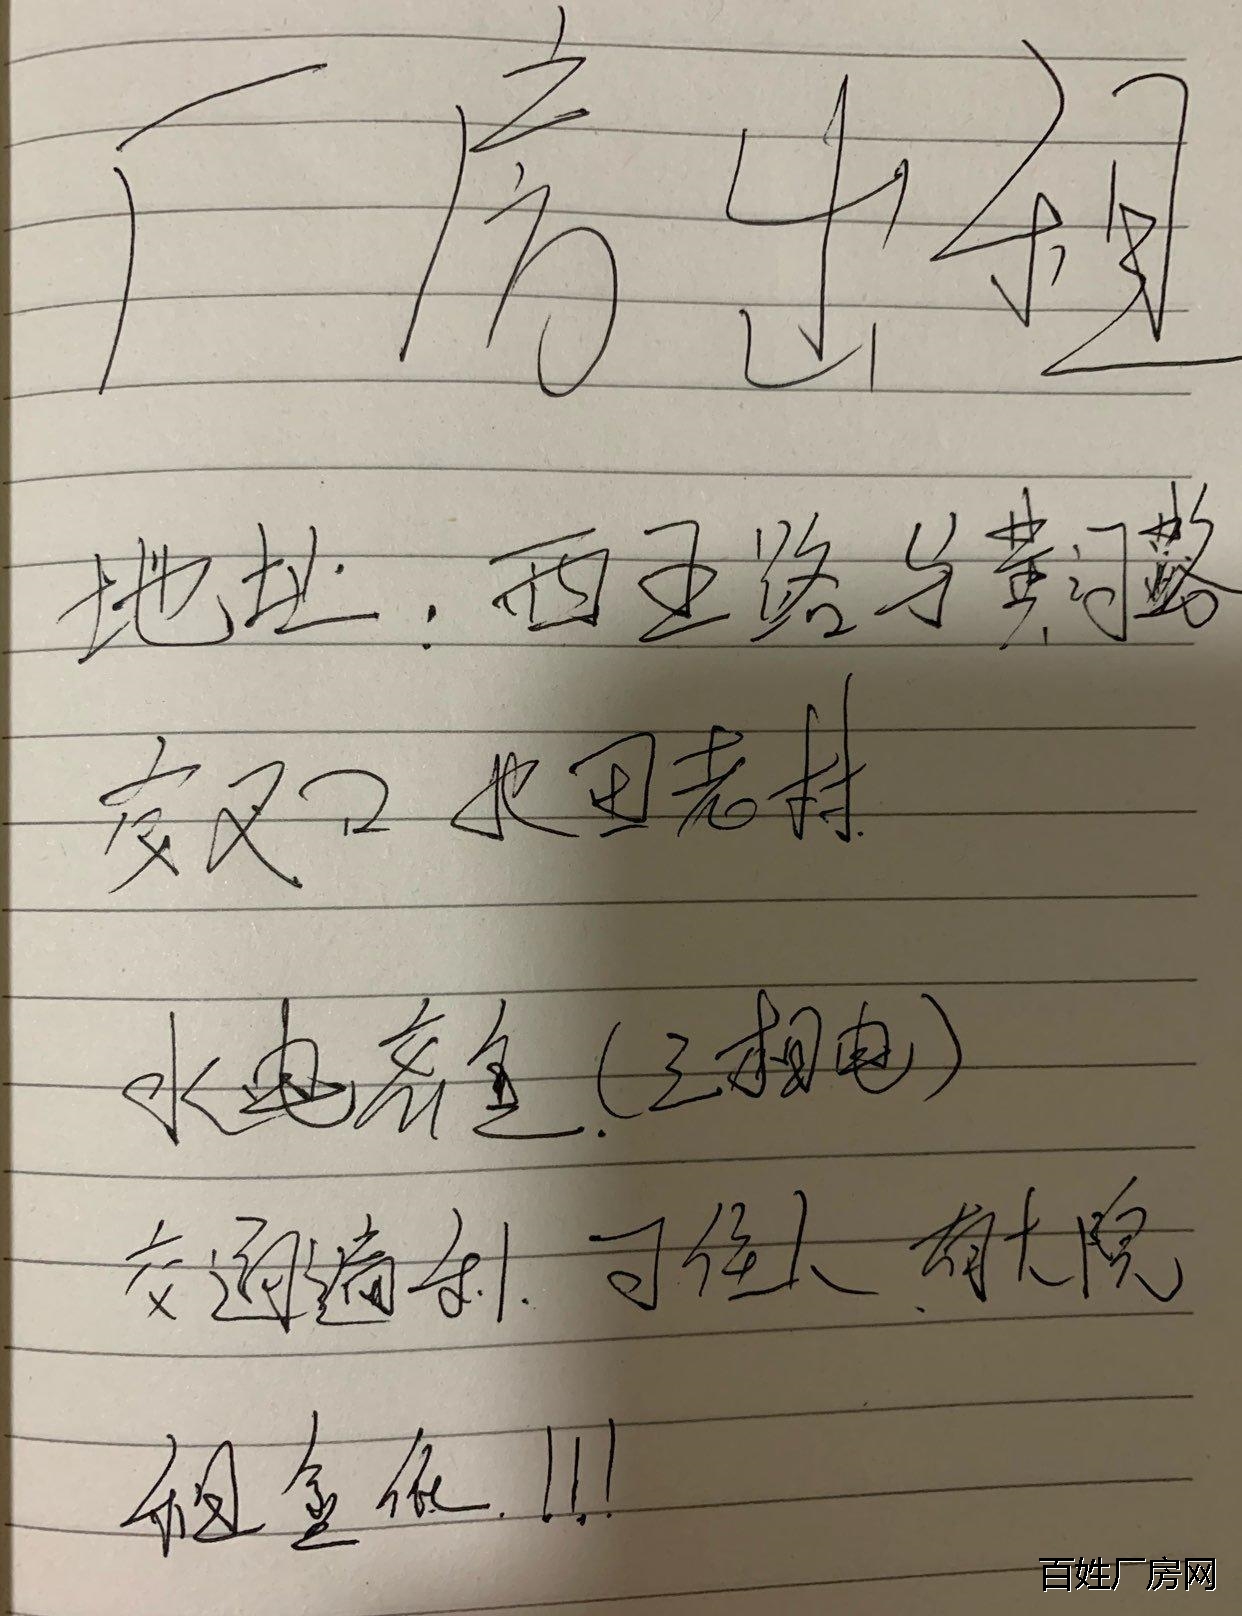 厂房出租
地址：西王路与黄河路
交叉口 地田老村
水电齐全.(三相电)
交通便利.可住人.有大院
租金低.!!!
百姓厂房网